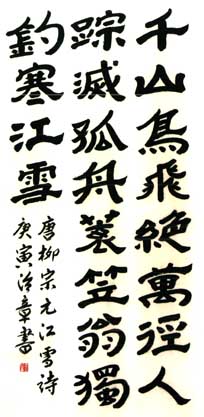 千山鳥飛絶萬徑人
踪滅孤舟蓑笠翁獨
釣寒江雪
唐柳宗元江雪詩
庚寅章書